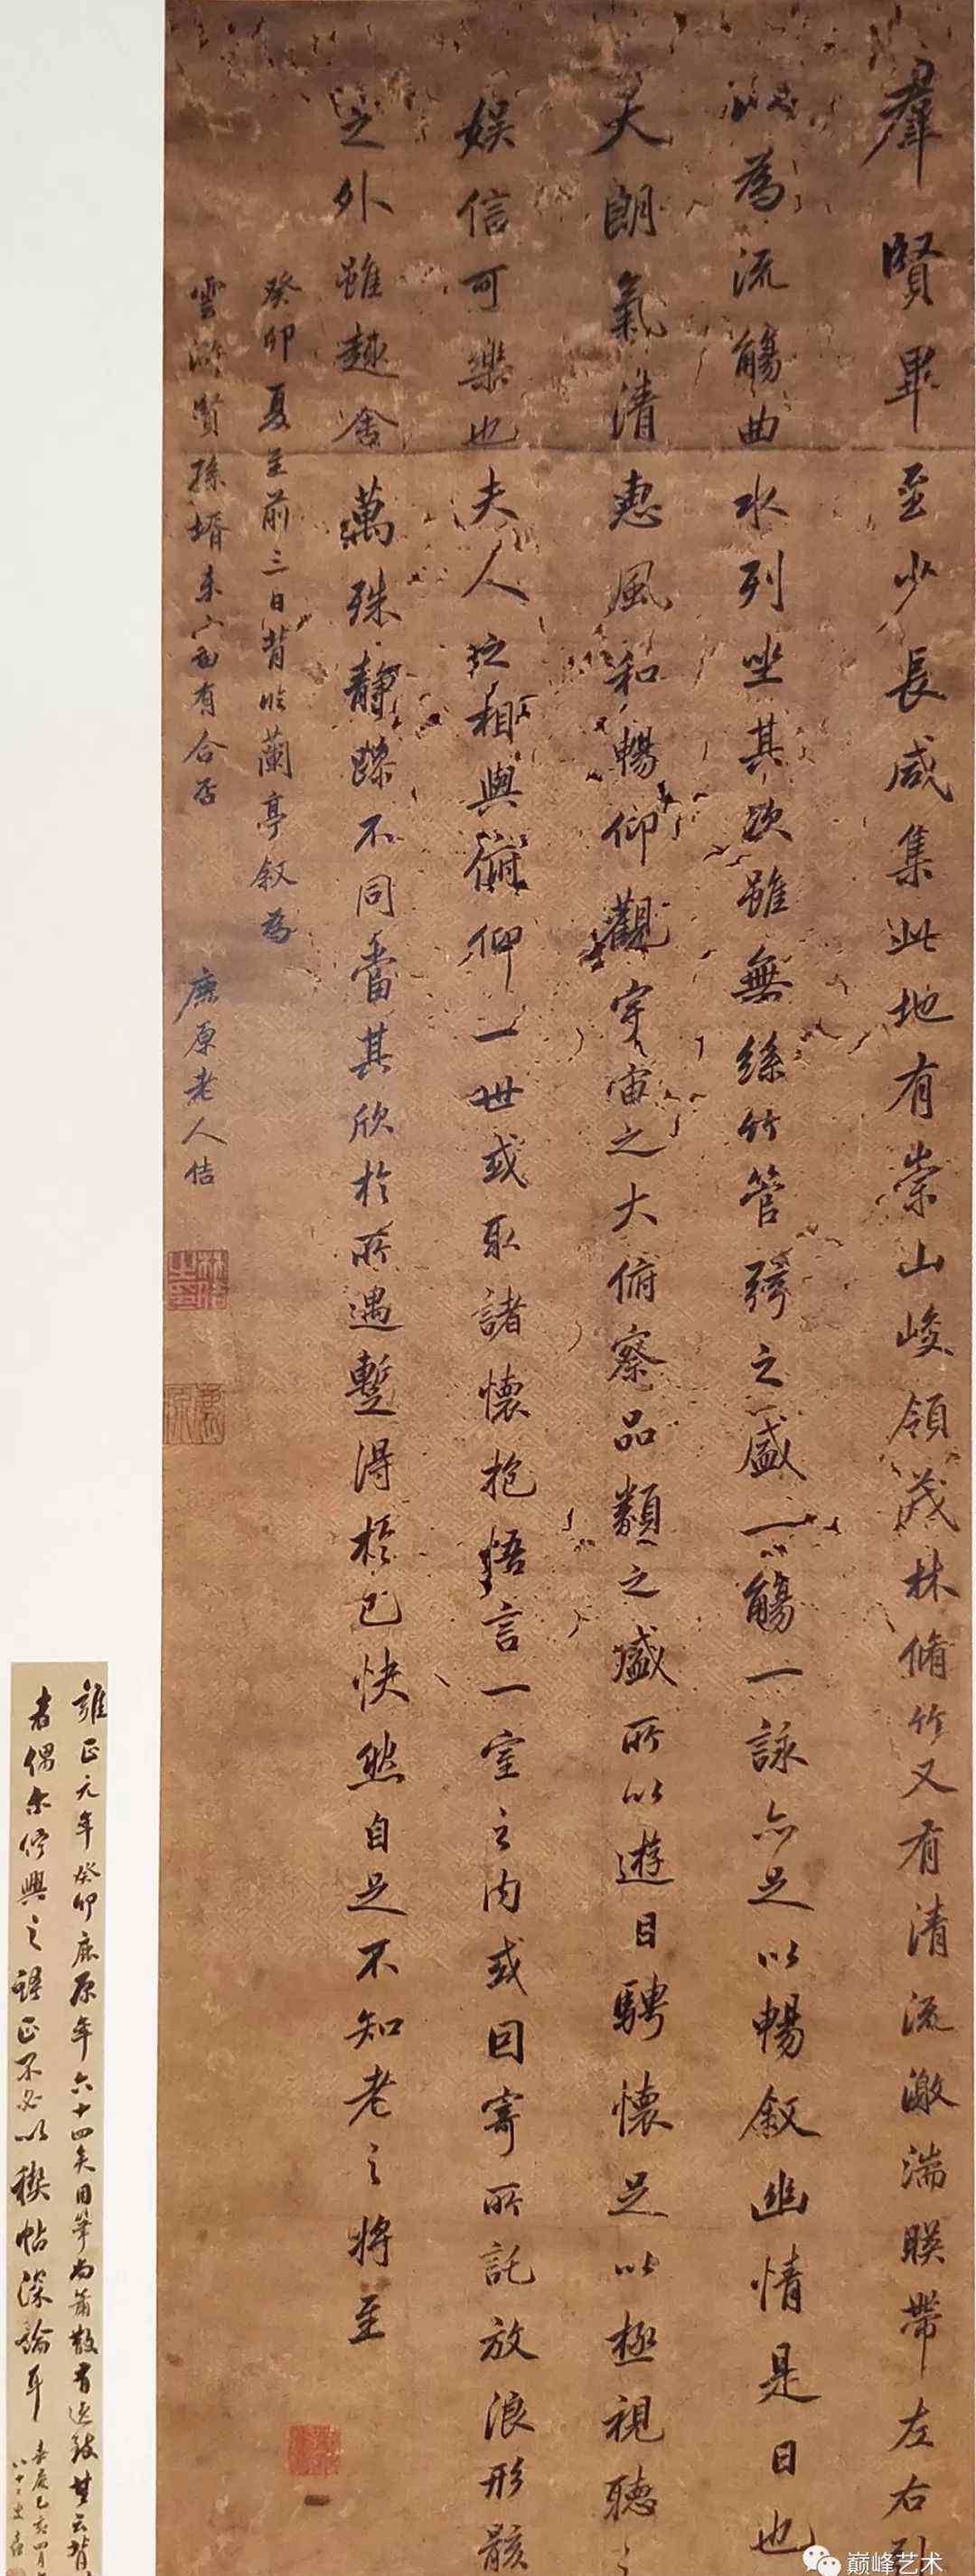 羣賢畢至少長咸集此地有崇山峻領茂林脩竹又有清流激湍暎帶左右引
以為流觴曲水列坐其次雖無絲竹管弦之盛一觴一詠亦足以暢敘幽情是日也
天朗氣清惠風和暢仰觀宇宙之大俯察品類之盛所以遊目騁懷足以極視聽之
娛信可樂也夫人之相與俯仰一世或取諸懷抱悟言一室之內或因寄所託放浪形骸
之外雖趣舍萬殊靜躁不同當其欣於所遇暫得於己快然自足不知老之將至
癸卯夏至前三日背臨蘭亭叙為
雲賢孫壻未審有合否
鹿原老人佶
雍正元年癸卯鹿原年六十四矣用筆尚蕭散有逸致其云背
者偶尔行興之語正不必以稧帖深論耳
巔峰艺术